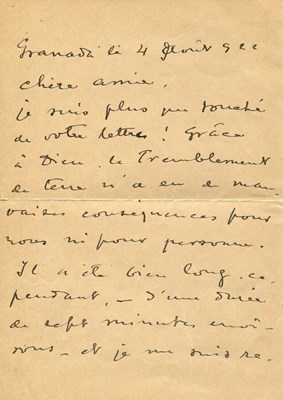 Granada le 4 Août 922
chère amie,
je suis plus que touché
de votre lettre! Grâce
à Dieu, le Tremblement
de terre n'a eu de mau
vaises consequences pour
nous ni pour personne.
Il a été bien long, ce,
pendant, – d'une durée
de sept minutes envi-
rons – et je me suis re-